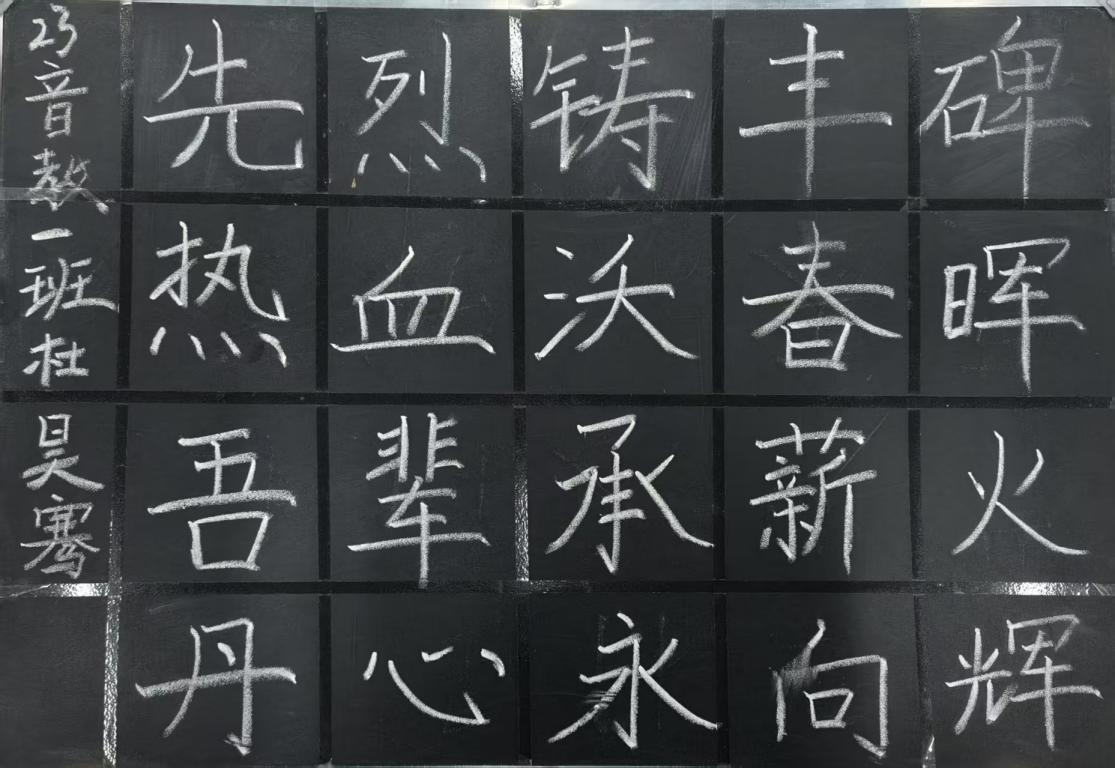 先烈铸丰碑
热血沃春晖
吾辈承薪火
丹心永向辉
23音教一班杜昊骞